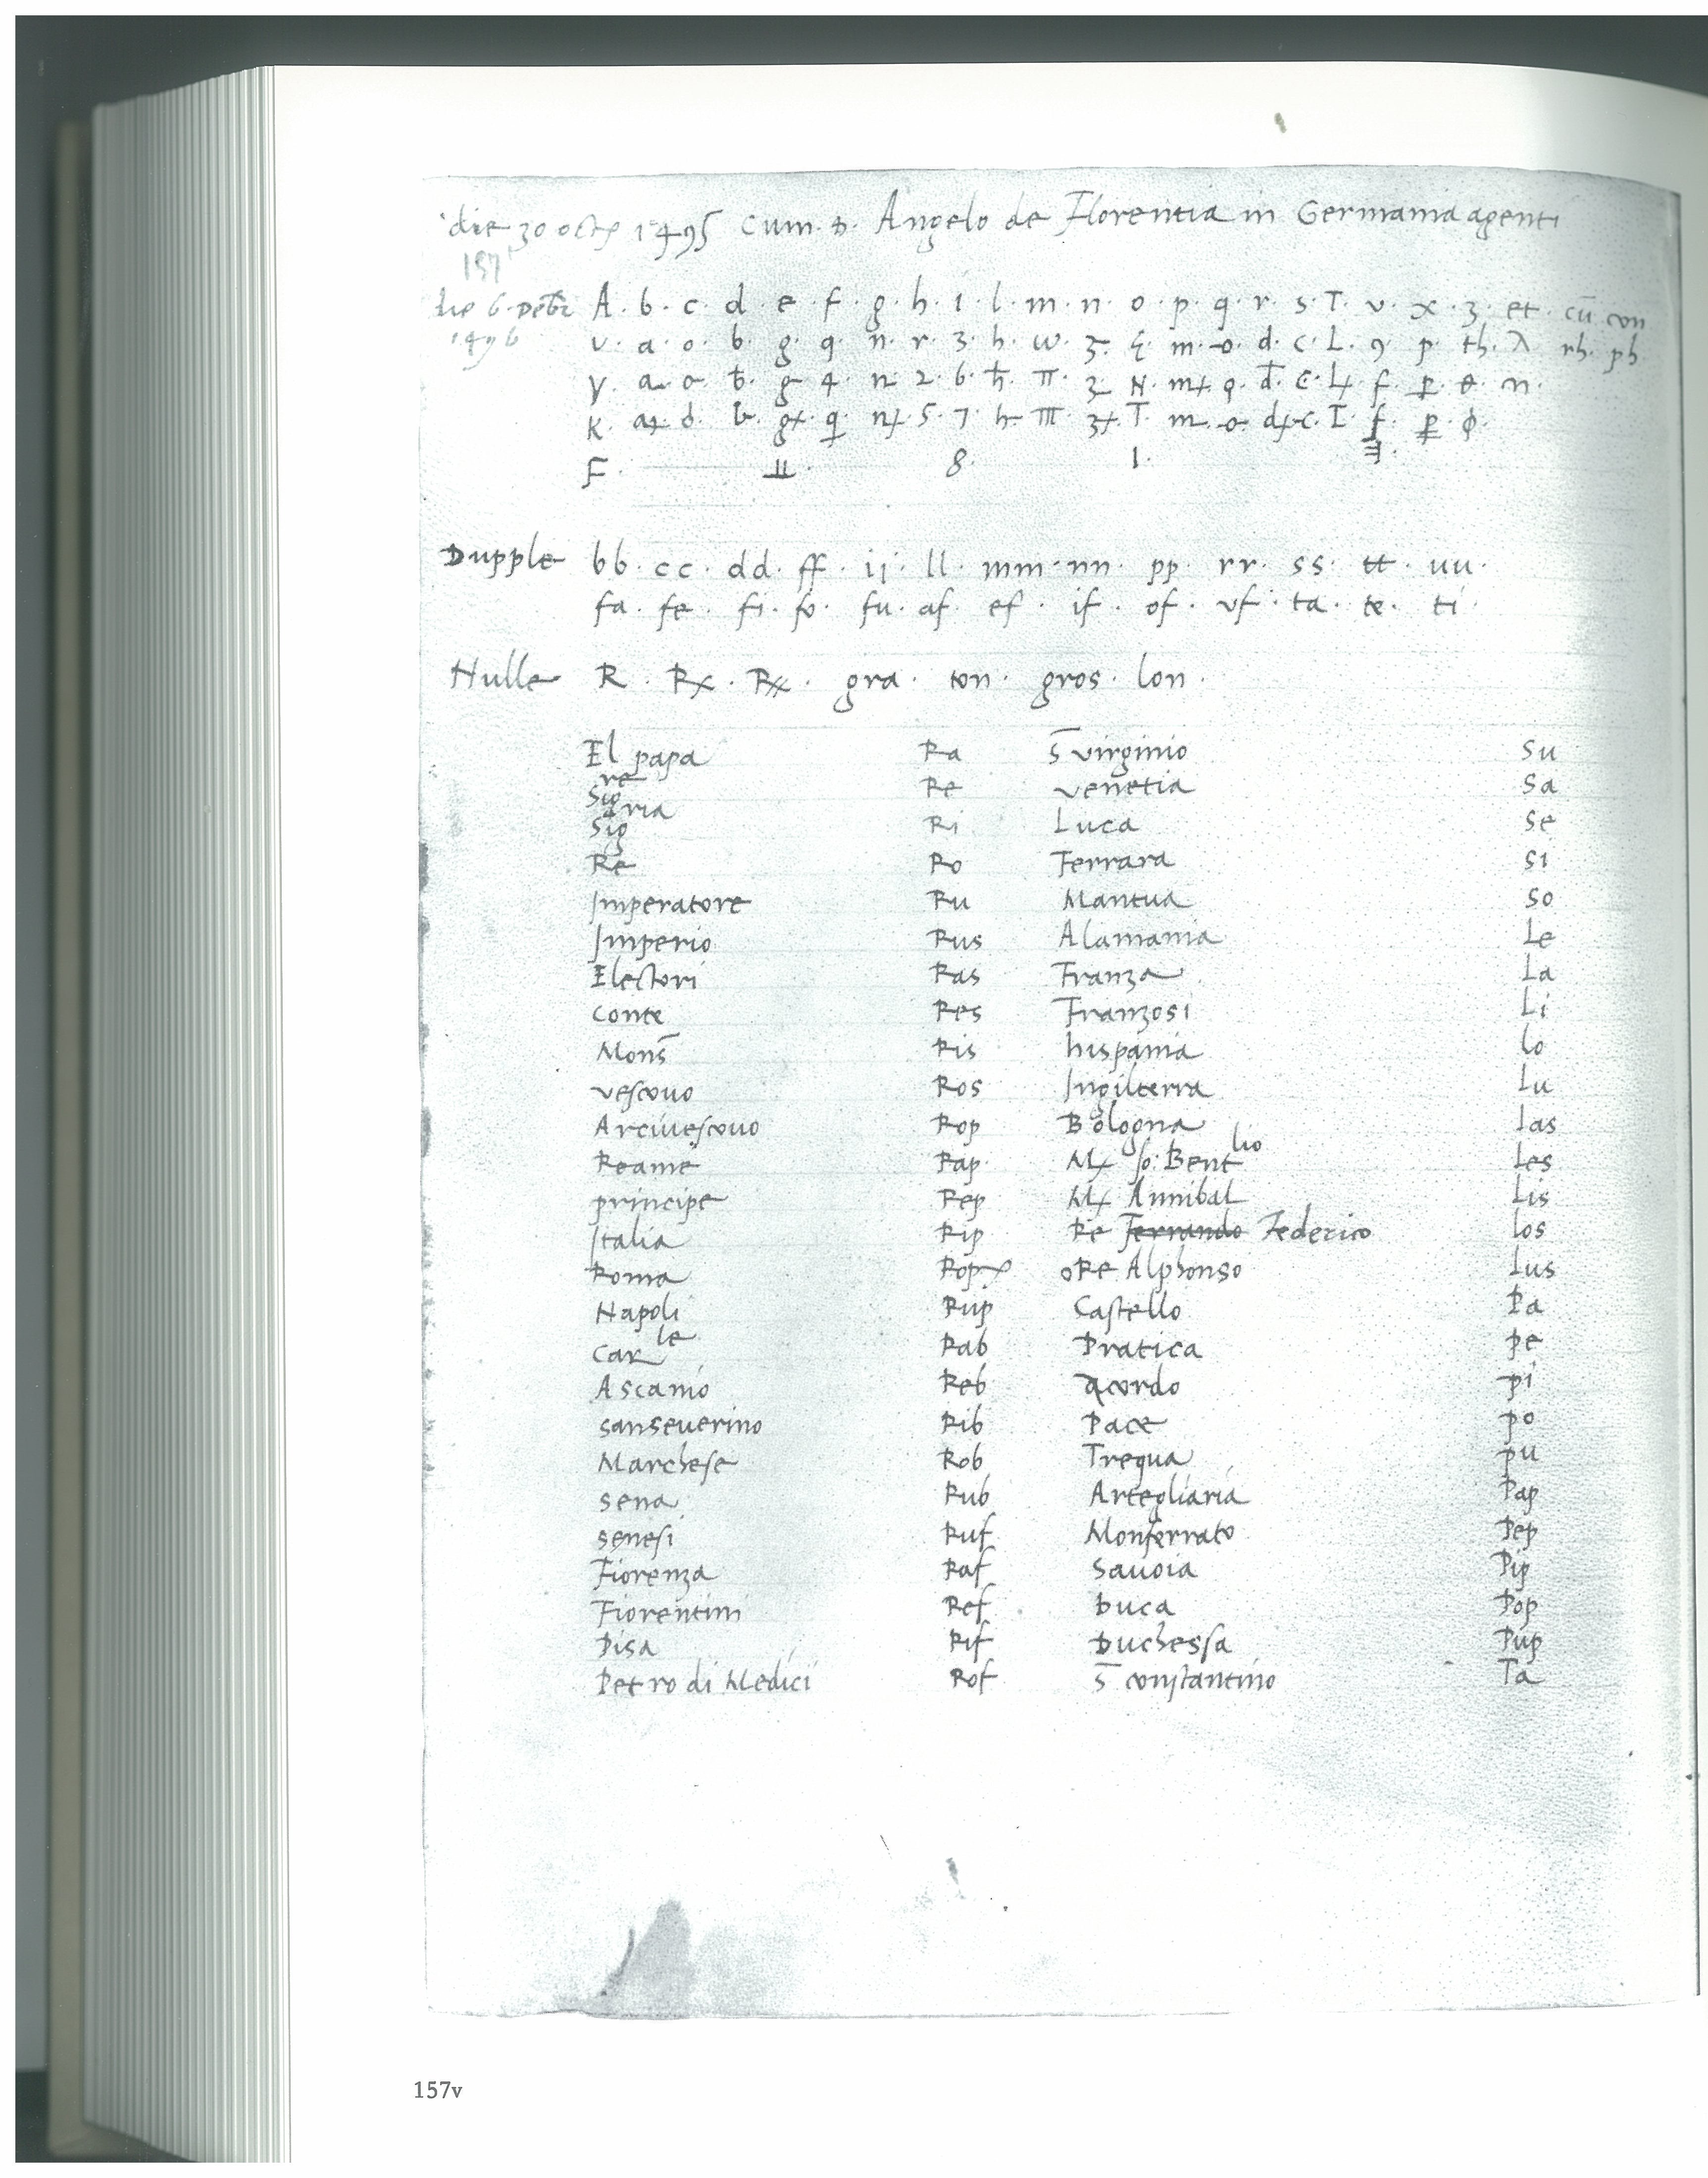 die 30 octo 1495 cum. D. Angelo de Florentia in Germania agenti
157
die 6. 
1496
A. b. c. d. e. f. g. h. i. l. m. n. o. p. q. r. s. T. v. x. z. et. cū con
v. a. o. b. g. q. n. r. 3. h. w. z. m. o. d. c. L. 9. p. th. λ rh. ph.
y. a. o. b. g. 4. n. 2. 6. h. π. z. N. m. q. d. c. f. p. θ. n.
K. a. d. b. g. q. n. 5. 7. h. z. T. m. o. d. c. I. f. p. ϕ.
F. 8. I.
Dupple bb. cc. dd. ff. ij. ll. mm. nn. pp. rr. ss. tt. uu.
fa. fe. fi. fo. fu. af. ef. if. of. vf. ta. te. ti
Nulle R. Rx. Rxx. gra. ton. gros. lon.
El papa Ra S̄ virginio Su
Sig re Re venetia Sa
Sig ria Ri Luca Se
Re Ro Ferrara Si
Imperatore Ru Mantua So
Imperio Rus Alamania Le
Electori Ras Franza La
Conte Res Franzosi Li
Mons̄ Ris hispania lo
vescovo Ros Ingilterra Lu
Arcivescovo Rop Bologna las
Reame Rap Mx Jo: Bent lio Les
principe Rep Mx Annibal Lis
Italia Rip Re Ferrando Federico los
Roma Rop oRe Alphonso Lus
Napoli Rup Castello Pa
Car le Rab Pratica pe
Ascanio Reb acordo pi
sanseuerino Rib Pace po
Marchese Rob Tregua pu
sena Rub Artegliaria Pap
senesi Ruf Monferrato Pep
Fiorenza Raf Sauoia Pip
Fiorentini Ref Duca Pop
Pisa Rif Duchessa Pup
Petro di Medici Rof S̄ constantino Ta
157v